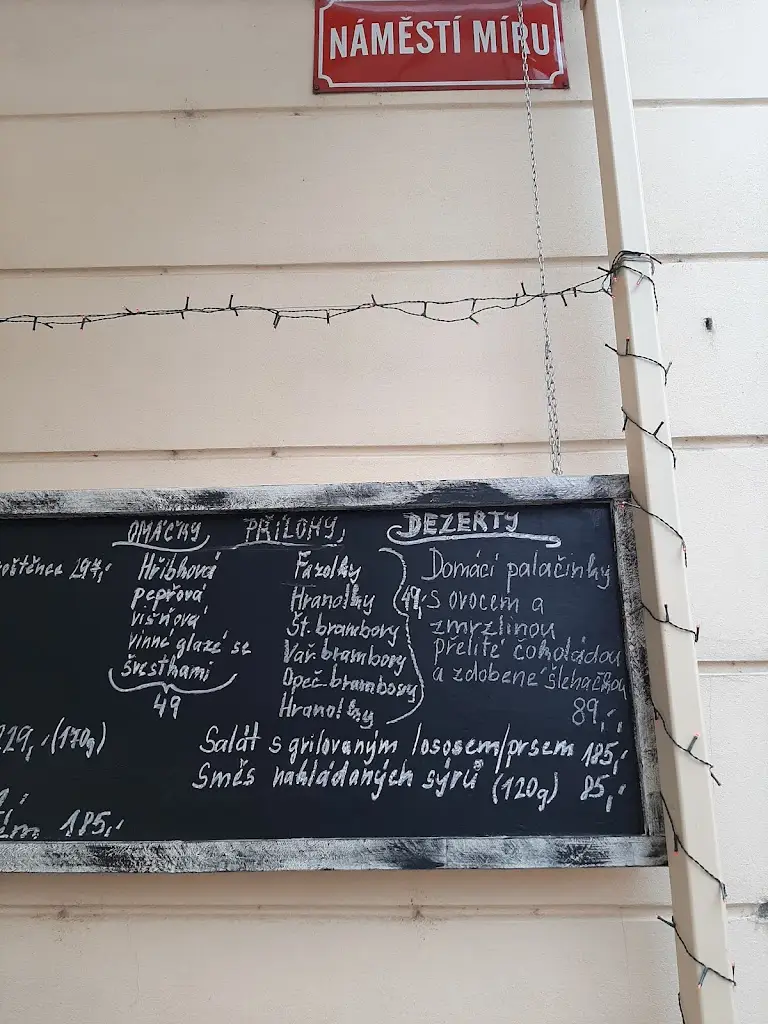 NÁMĚSTÍ MÍRU
OMÁČKY
Hřibková
pepřová
višňová
vinné glazé se
švestkami
49
PŘÍLOHY
Fazolky
Hranolky
Št. brambory
Vař. brambory
Opeč. brambory
Hranolky
49,-
DEZERTY
Domácí palačinky
s ovocem a
zmrzlinou
přelité čokoládou
a zdobené šlehačkou
89,-
197,-
229,- (170g)
185,-
Salát s grilovaným lososem/prsem 185,-
Směs nakládaných sýrů (120g) 85,-